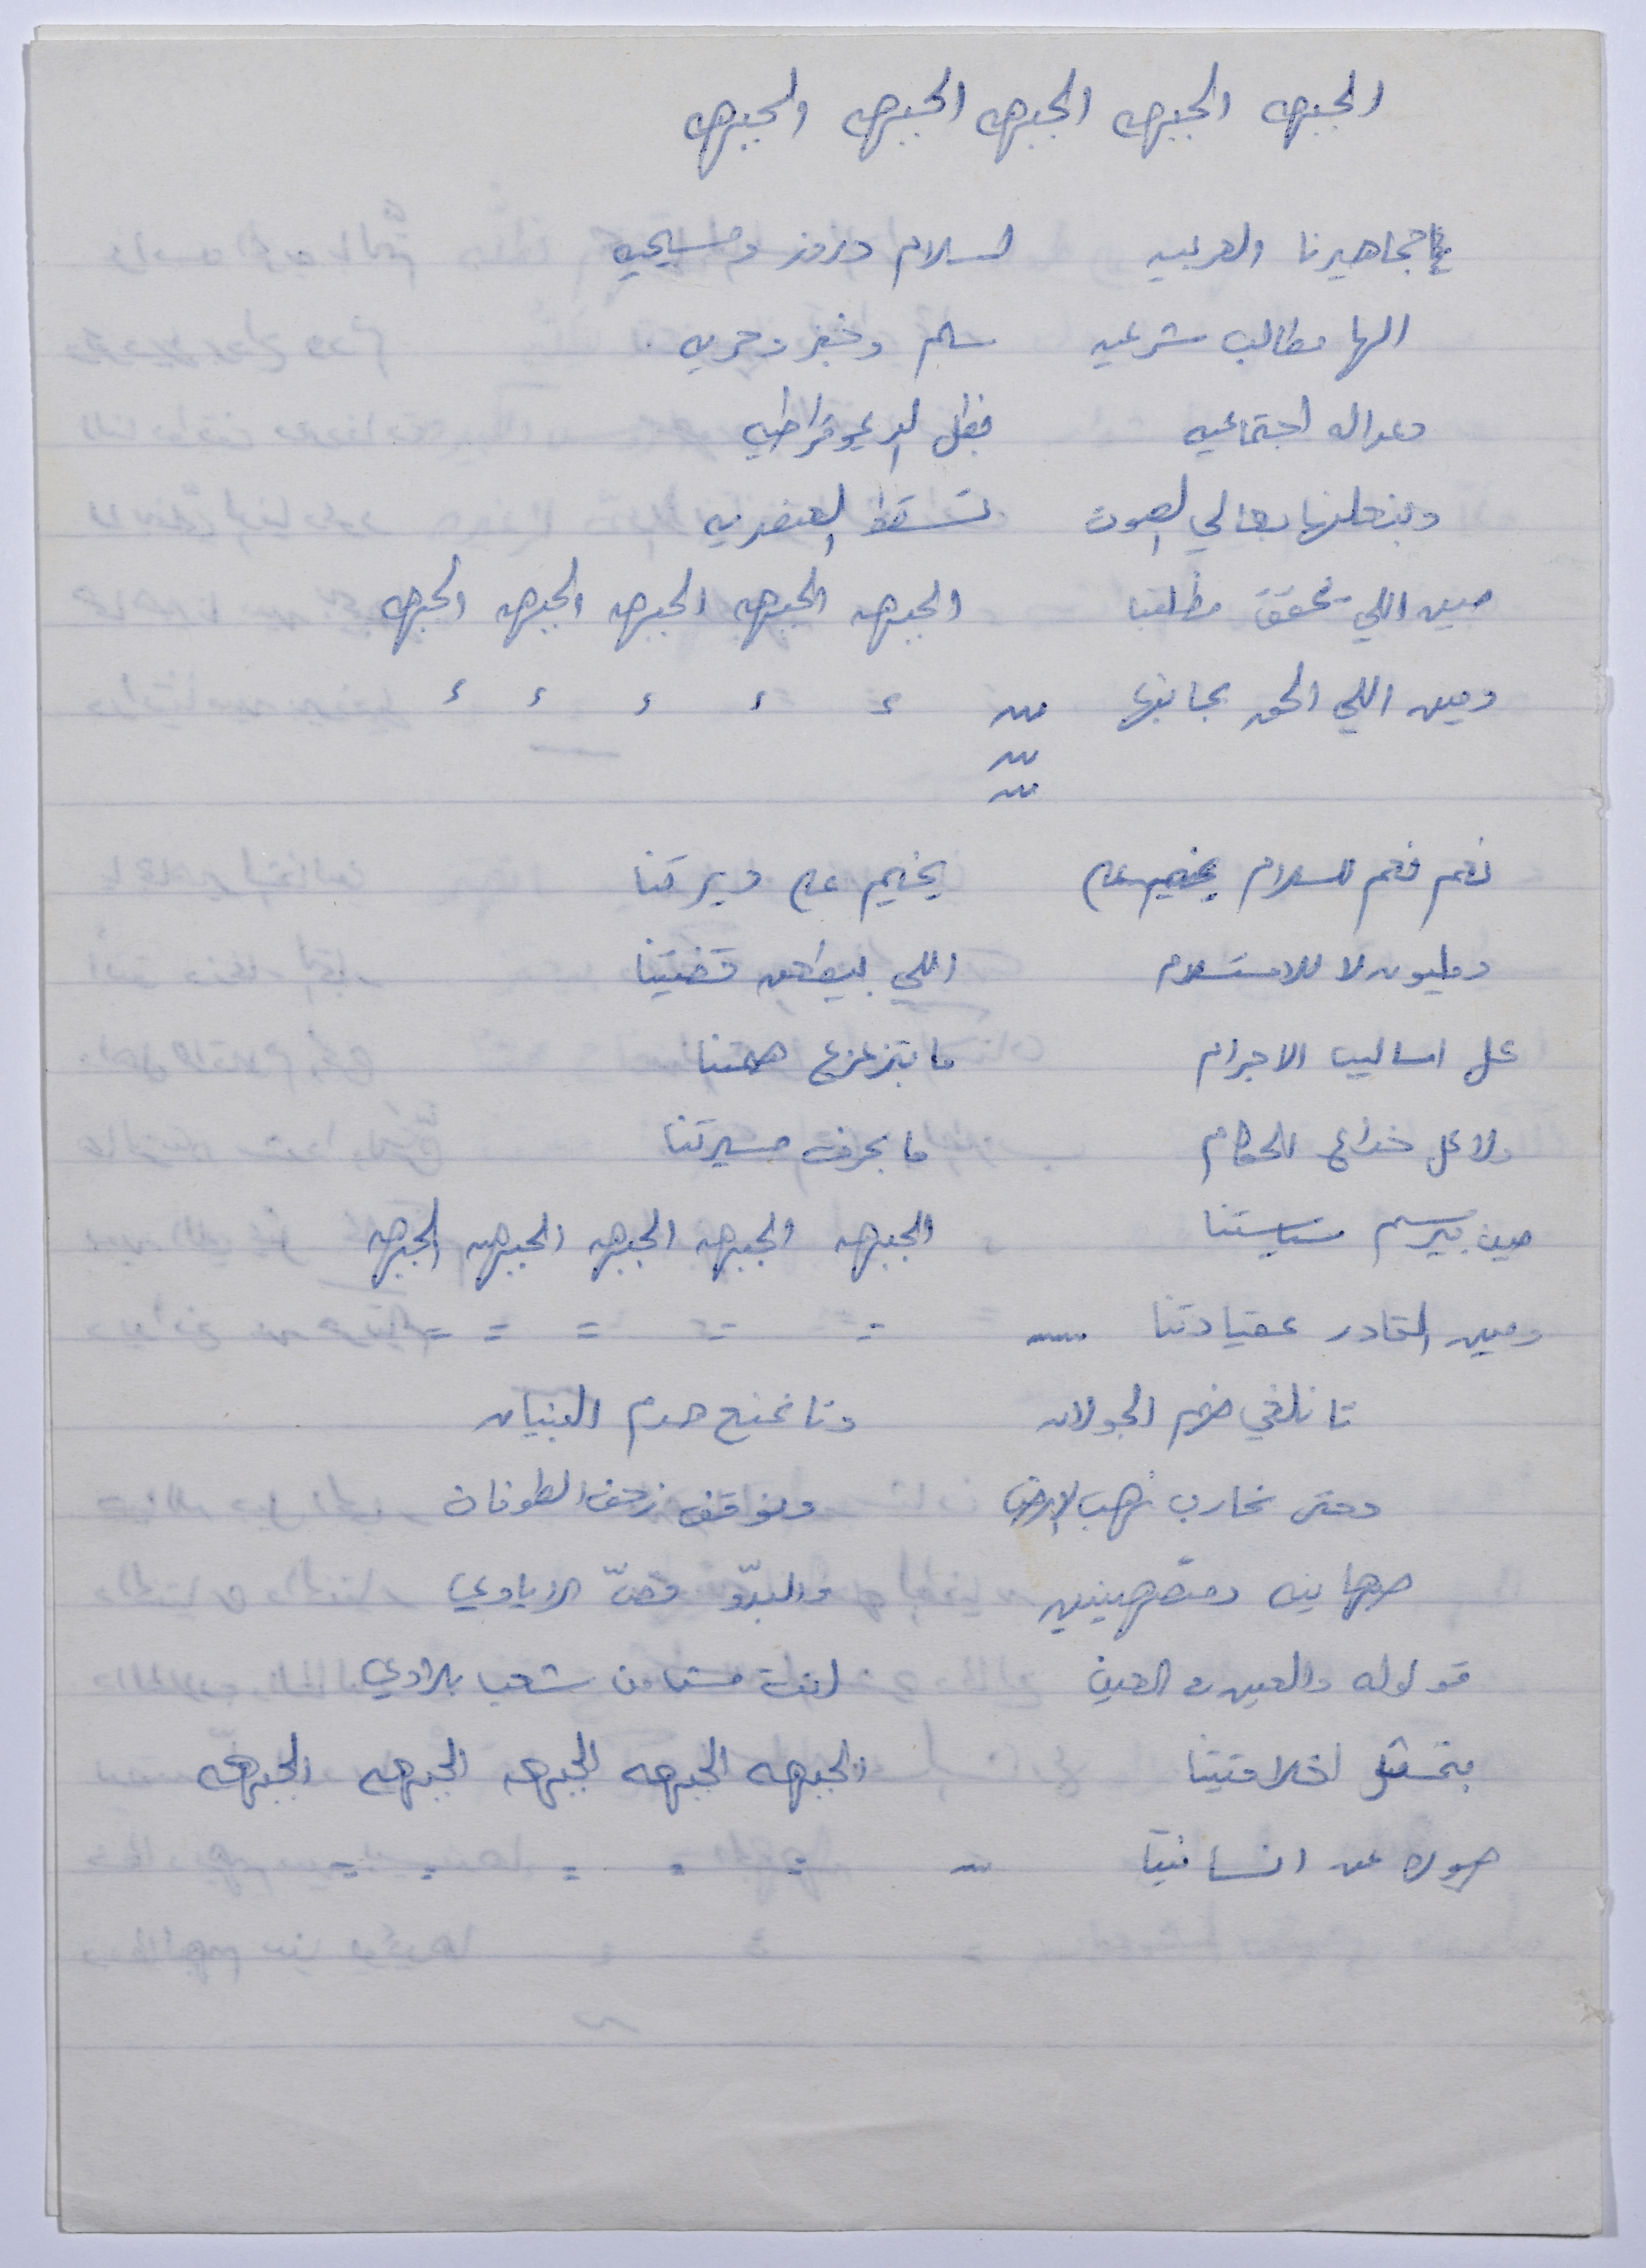 الجبهه الجبهه الجبهه الجبهه والجبهه
جماهيرنا العربيه اسلام دروز ومسيحيه
الها مطالب شرعيه سلم وخبز وحريه
وعداله اجتماعيه فظل الديموقراطيه
وبنعلنها بعالي الصوت تسقط العنصريه
مين اللي بتحقق مطلبنا الجبهه الجبهه الجبهه الجبهه الجبهه
ومين اللي الحق بجانبها ... ء ء ء ء ء
نعم نعم للسلام يخيم ع ديرتنا
ومليون لا للاستسلام اللي بيطعن قضيتنا
كل اساليب الاجرام ما بتزعزع همتنا
ولا كل خداع الحكام ما بحرف مسيرتنا
مين بيرسم سياستنا الجبهه الجبهه الجبهه الجبهه الجبهه
ومين القادر عقيادتنا ..... = = = = =
تا نلغي ضم الجولان وتا نمنع هدم البنيان
وحتى نحارب نهب الارض ونوقف زحف الطوفان
صهاينه ومتصهينين والبدّو قصّ الايادي
قولوله والعين في العين انت مسؤول شعب بلادي
بتمثل اخلاقيتنا الجبهه الجبهه الجبهه الجبهه الجبهه
صوره عن انسانيتنا ... = = = = =